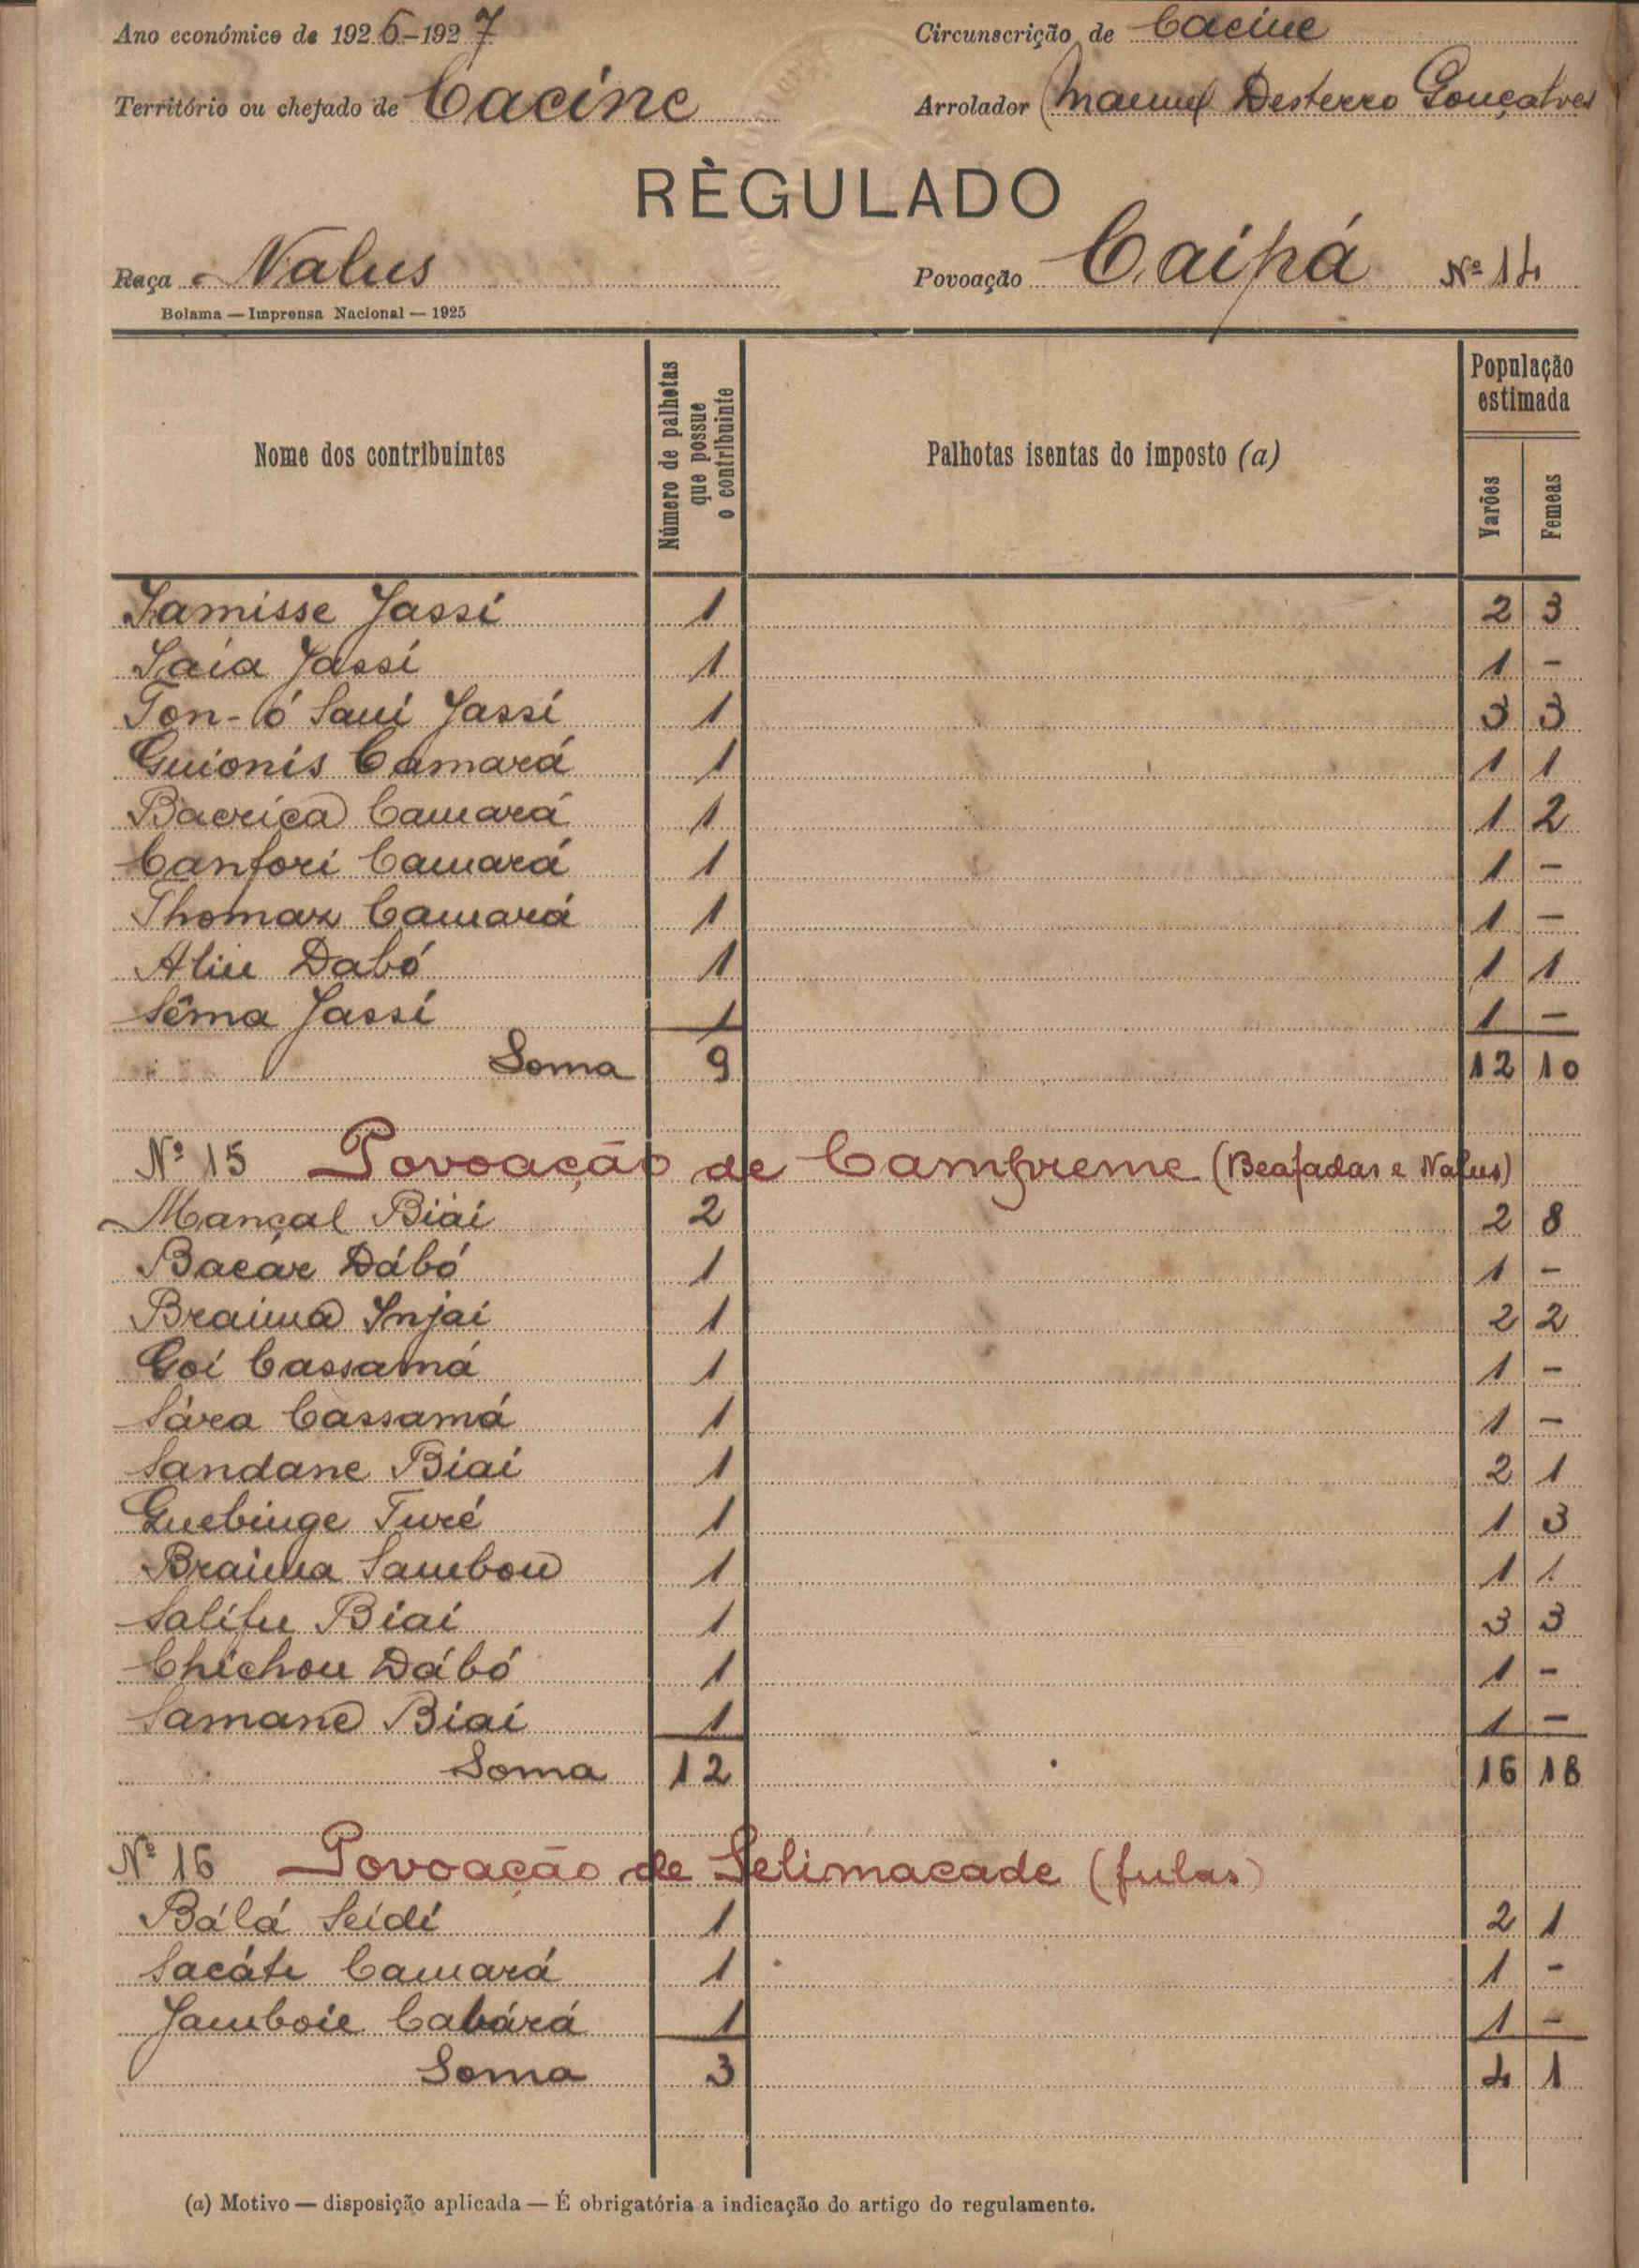 Ano económico de 1926-1927 Circunscrição de Cacine
Território ou chefado de Cacine Arrolador Manuel Desterro Gonçalves
RÈGULADO
Raça Nalus Povoação Caipá Nº 14
Bolama — Imprensa Nacional — 1925
Nome dos contribuintes
Número de palhotas
que possue
o contribuinte
Palhotas isentas do imposto (a)
População
estimada
Varões
Femeas
Samisse Jassi 1 2 3
Saia Jassi 1 1 -
Ton-ó Saui Jassi 1 3 3
Guionis Camará 1 1 1
Bacrica Camará 1 1 2
Canfori Camará 1 1 -
Thomaz Camará 1 1 -
Aliu Dabó 1 1 1
Sêma Jassi 1 1 -
Soma 9 12 10
Nº 15 Povoação de Campreme (Beafadas e Nalus)
Mançal Biai 2 2 8
Bacár Dábó 1 1 -
Braima Injai 1 2 2
Goi Cassamá 1 1 -
Sára Cassamá 1 1 -
Sandane Biai 1 2 1
Guebinge Turé 1 1 3
Braima Sambou 1 1 1
Salifu Biai 1 3 3
Chichou Dábó 1 1 -
Samane Biai 1 1 -
Soma 12 16 18
Nº 16 Povoação de Selimacade (fulas)
Bálá Seidi 1 2 1
Sacáti Camará 1 1 -
Jamboie Cabárá 1 1 -
Soma 3 4 1
(a) Motivo — disposição aplicada — É obrigatória a indicação do artigo do regulamento.